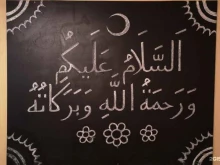 اَلسَّلَامُ عَلَيْكُمْ
وَرَحْمَةُ اللَّهِ وَبَرَكَاتُهُ